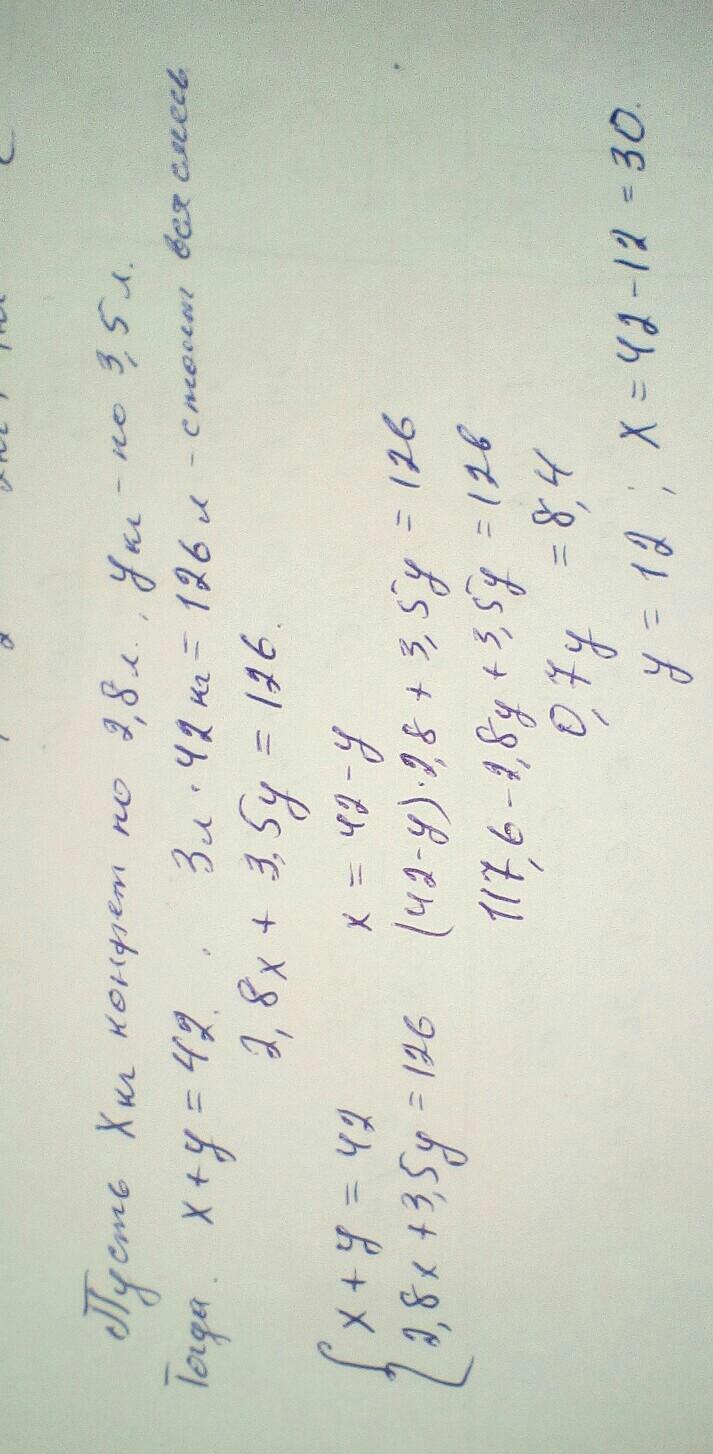 Пусть X кг конфет по 2,8 л., y кг - по 3,5 л.
Тогда x + y = 42. 3 л · 42 кг = 126 л - стоит вся смесь
2,8x + 3,5y = 126.
{ x + y = 42 x = 42 - y
2,8x + 3,5y = 126 (42 - y) · 2,8 + 3,5y = 126
117,6 - 2,8y + 3,5y = 126
0,7y = 8,4
y = 12 ; x = 42 - 12 = 30.